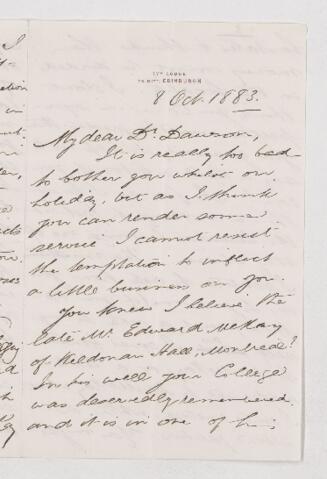 LODGE
EDINBURGH
8 Oct. 1883.
My dear Dr. Dawson,
It is really too bad
to bother you whilst on
holiday, but as I think
you can render some
service I cannot resist
the temptation to inflict
a little business on you.
You knew I believe the
late Mr. Edward McKay
of Kildonan Hall, Montreal?
In his will your College
was deservedly remembered
and it is in one of his